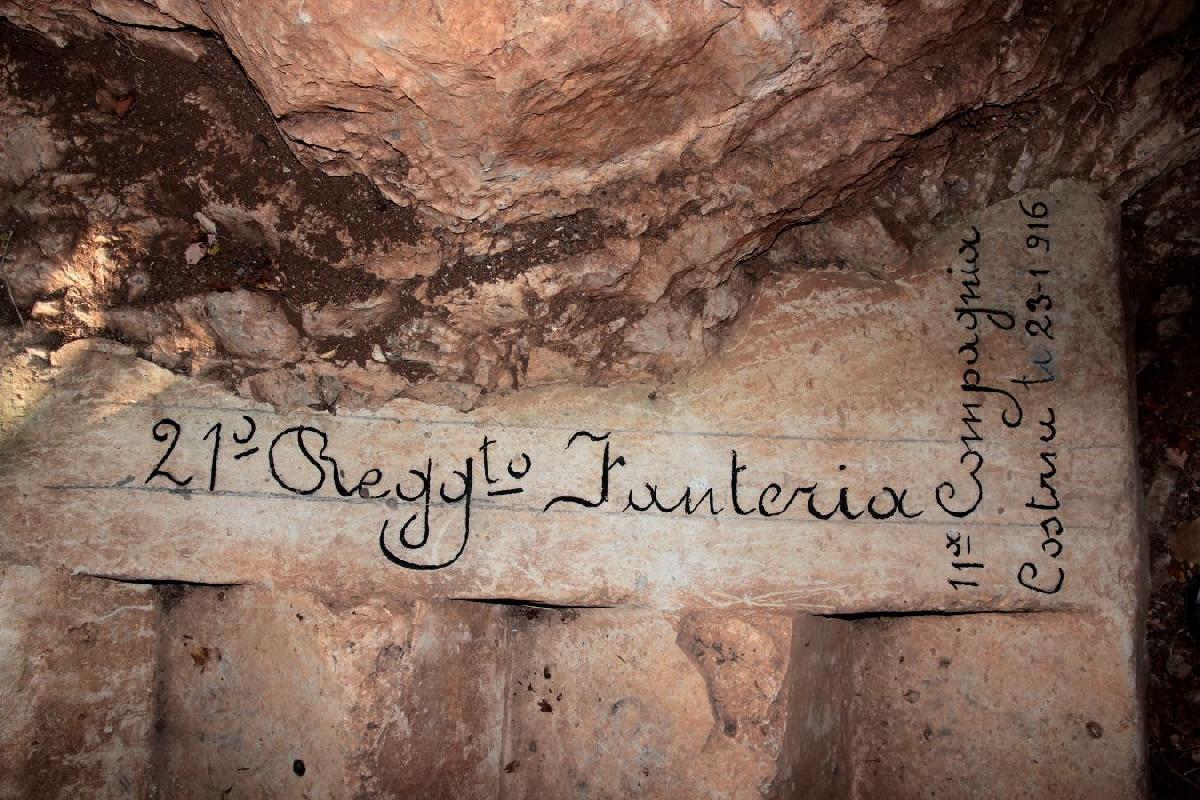 21º Reggto Fanteria
11ª Compagnia
Costruita 23-1 916